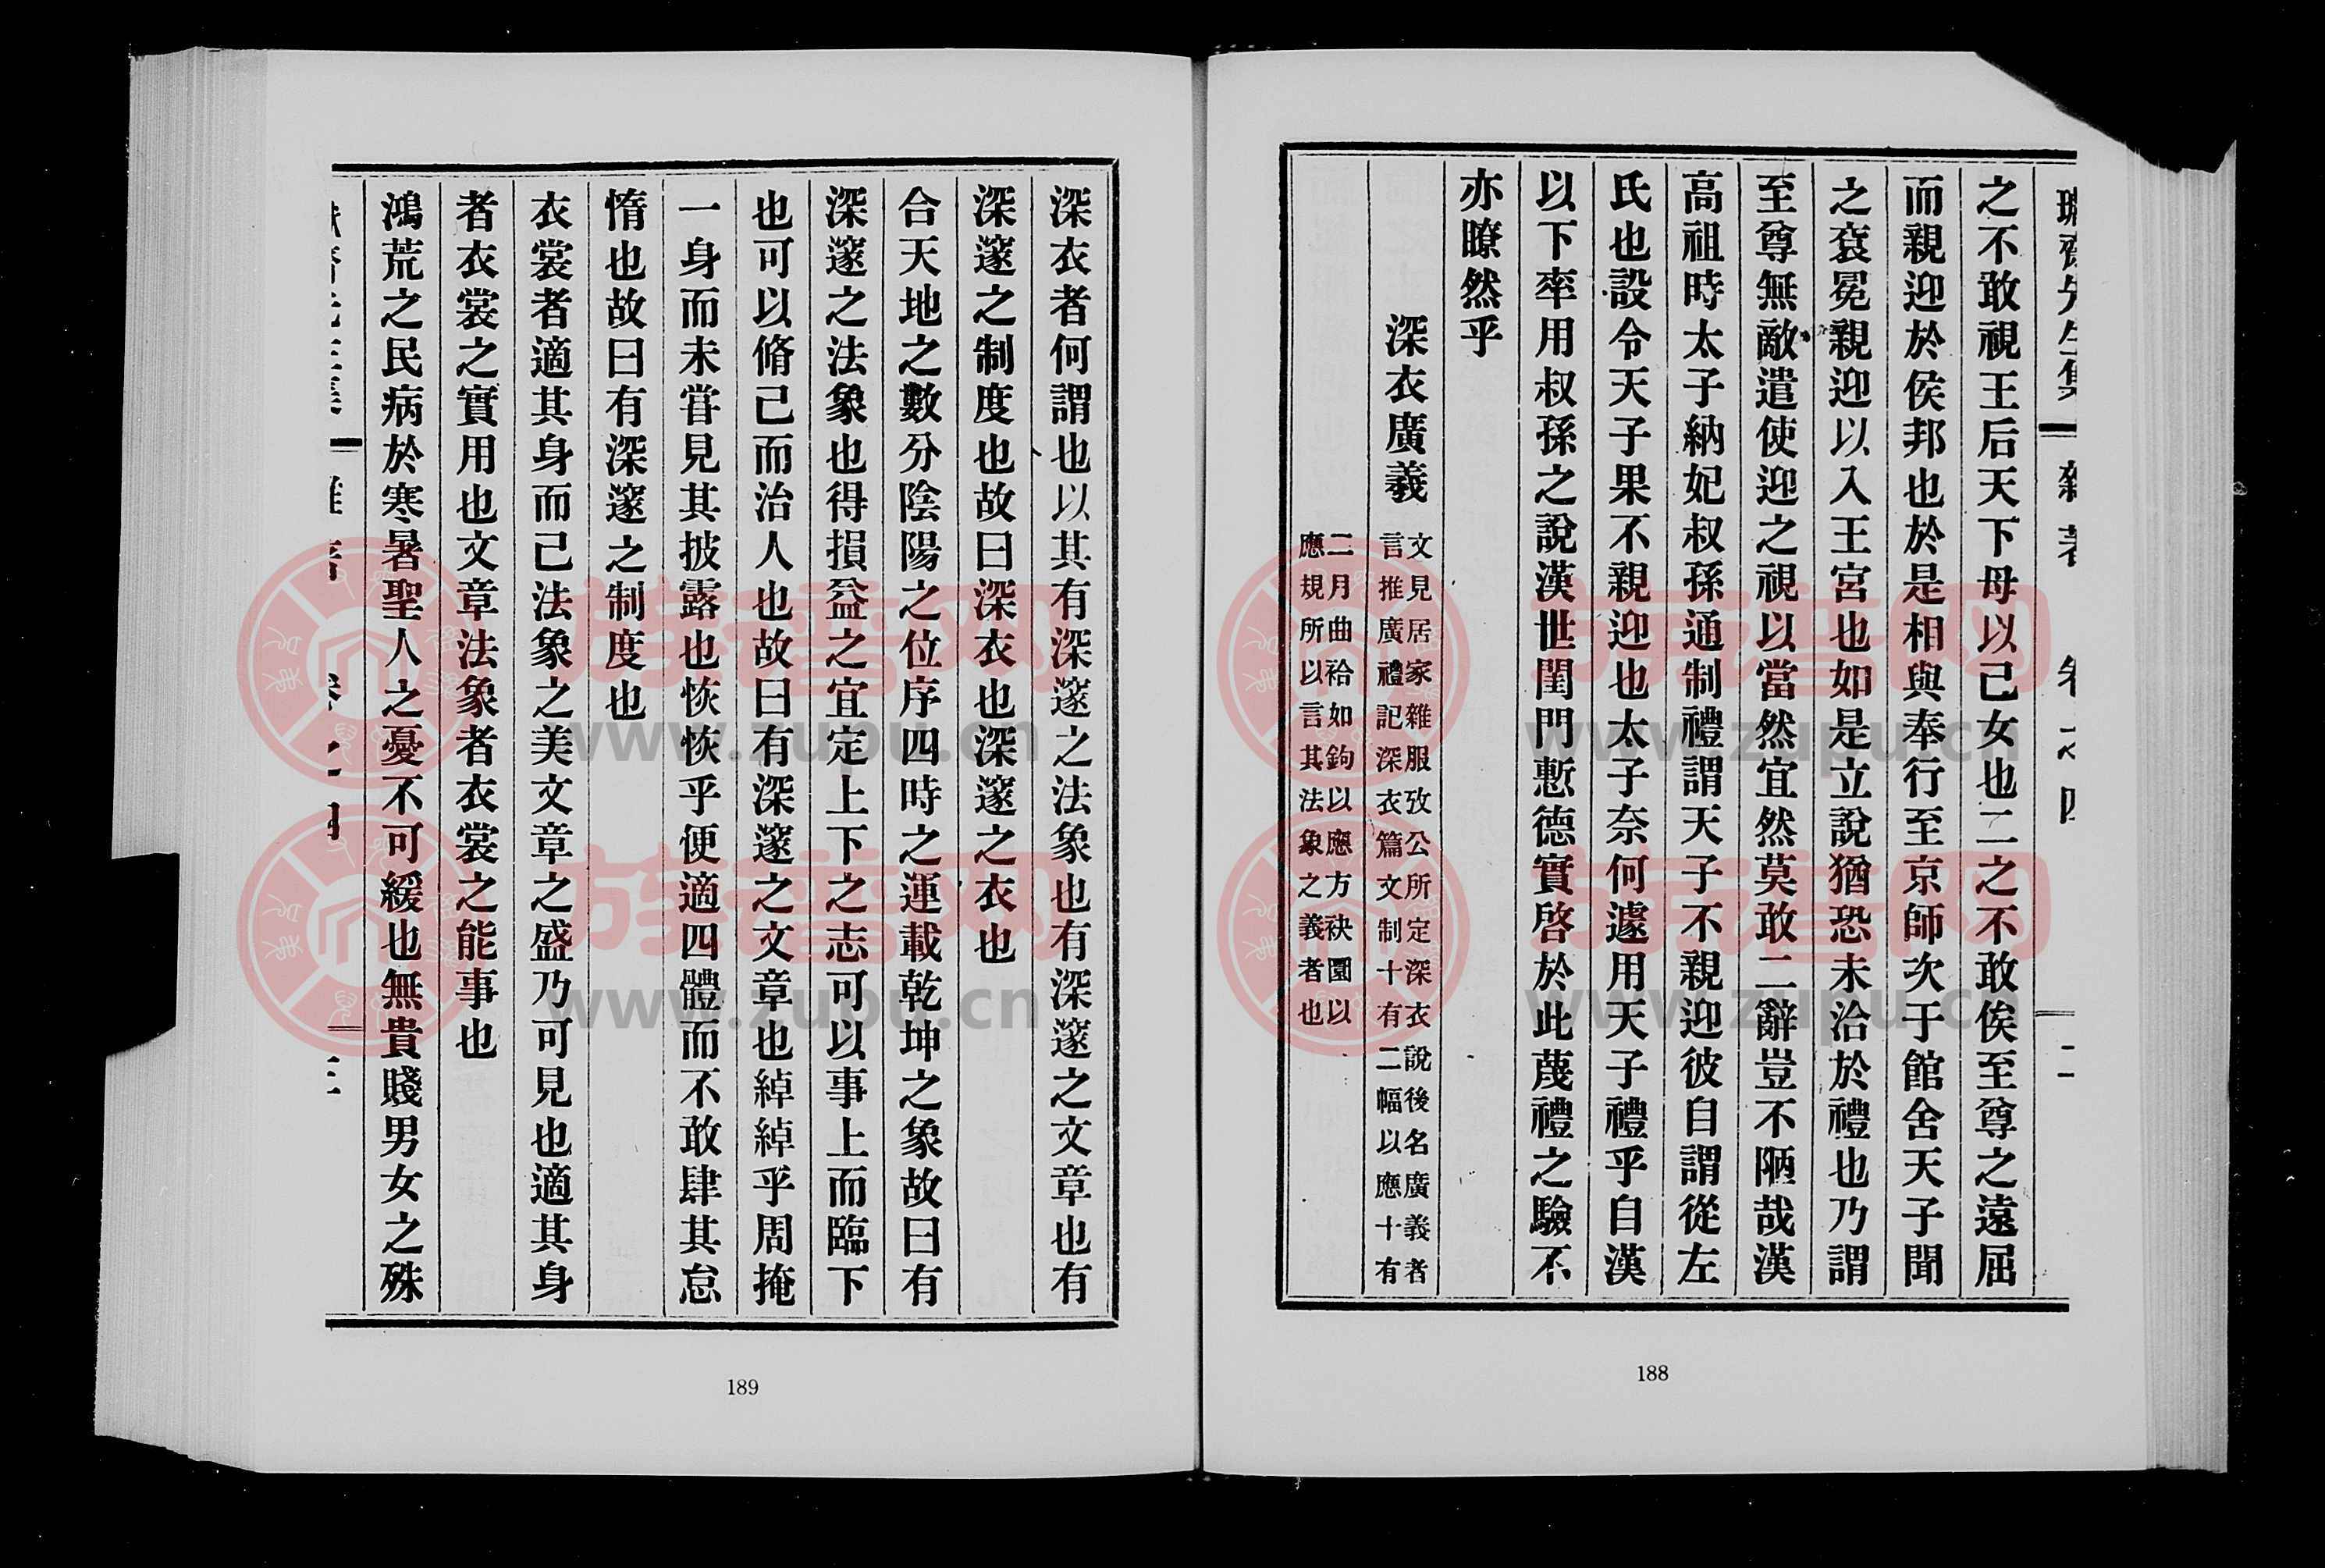 之不敢視王后天下母以己女也二之不敢俟至尊之遠屈
而親迎於侯邦也於是相與奉行至京師次于館舍天子聞
之袞冕親迎以入王宮也如是立說猶恐未洽於禮也乃謂
至尊無敵遣使迎之視以當然宜然莫敢二辭豈不陋哉漢
高祖時太子納妃叔孫通制禮謂天子不親迎彼自謂從左
氏也設令天子果不親迎也太子奈何遽用天子禮乎自漢
以下率用叔孫之說漢世閨門慙德實啓於此蔑禮之驗不
亦瞭然乎
深衣廣義
文見居家雜服攷公所定深衣說後名廣義者
言推廣禮記深衣篇文制十有二幅以應十有
二月曲袷如鉤以應方袂圜以
應規所以言其法象之義者也
雜著
二
188
深衣者何謂也以其有深邃之法象也有深邃之文章也有
深邃之制度也故曰深衣也深邃之衣也
合天地之數分陰陽之位序四時之運載乾坤之象故曰有
深邃之法象也得損益之宜定上下之志可以事上而臨下
也可以脩己而治人也故曰有深邃之文章也綽綽乎周掩
一身而未嘗見其披露也恢恢乎便適四體而不敢肆其怠
惰也故曰有深邃之制度也
衣裳者適其身而己法象之美文章之盛乃可見也適其身
者衣裳之實用也文章法象者衣裳之能事也
鴻荒之民病於寒暑聖人之憂不可緩也無貴賤男女之殊
189
族譜网
www.zupu.cn
族譜网
www.zupu.cn
族譜网
www.zupu.cn
族譜网
www.zupu.cn